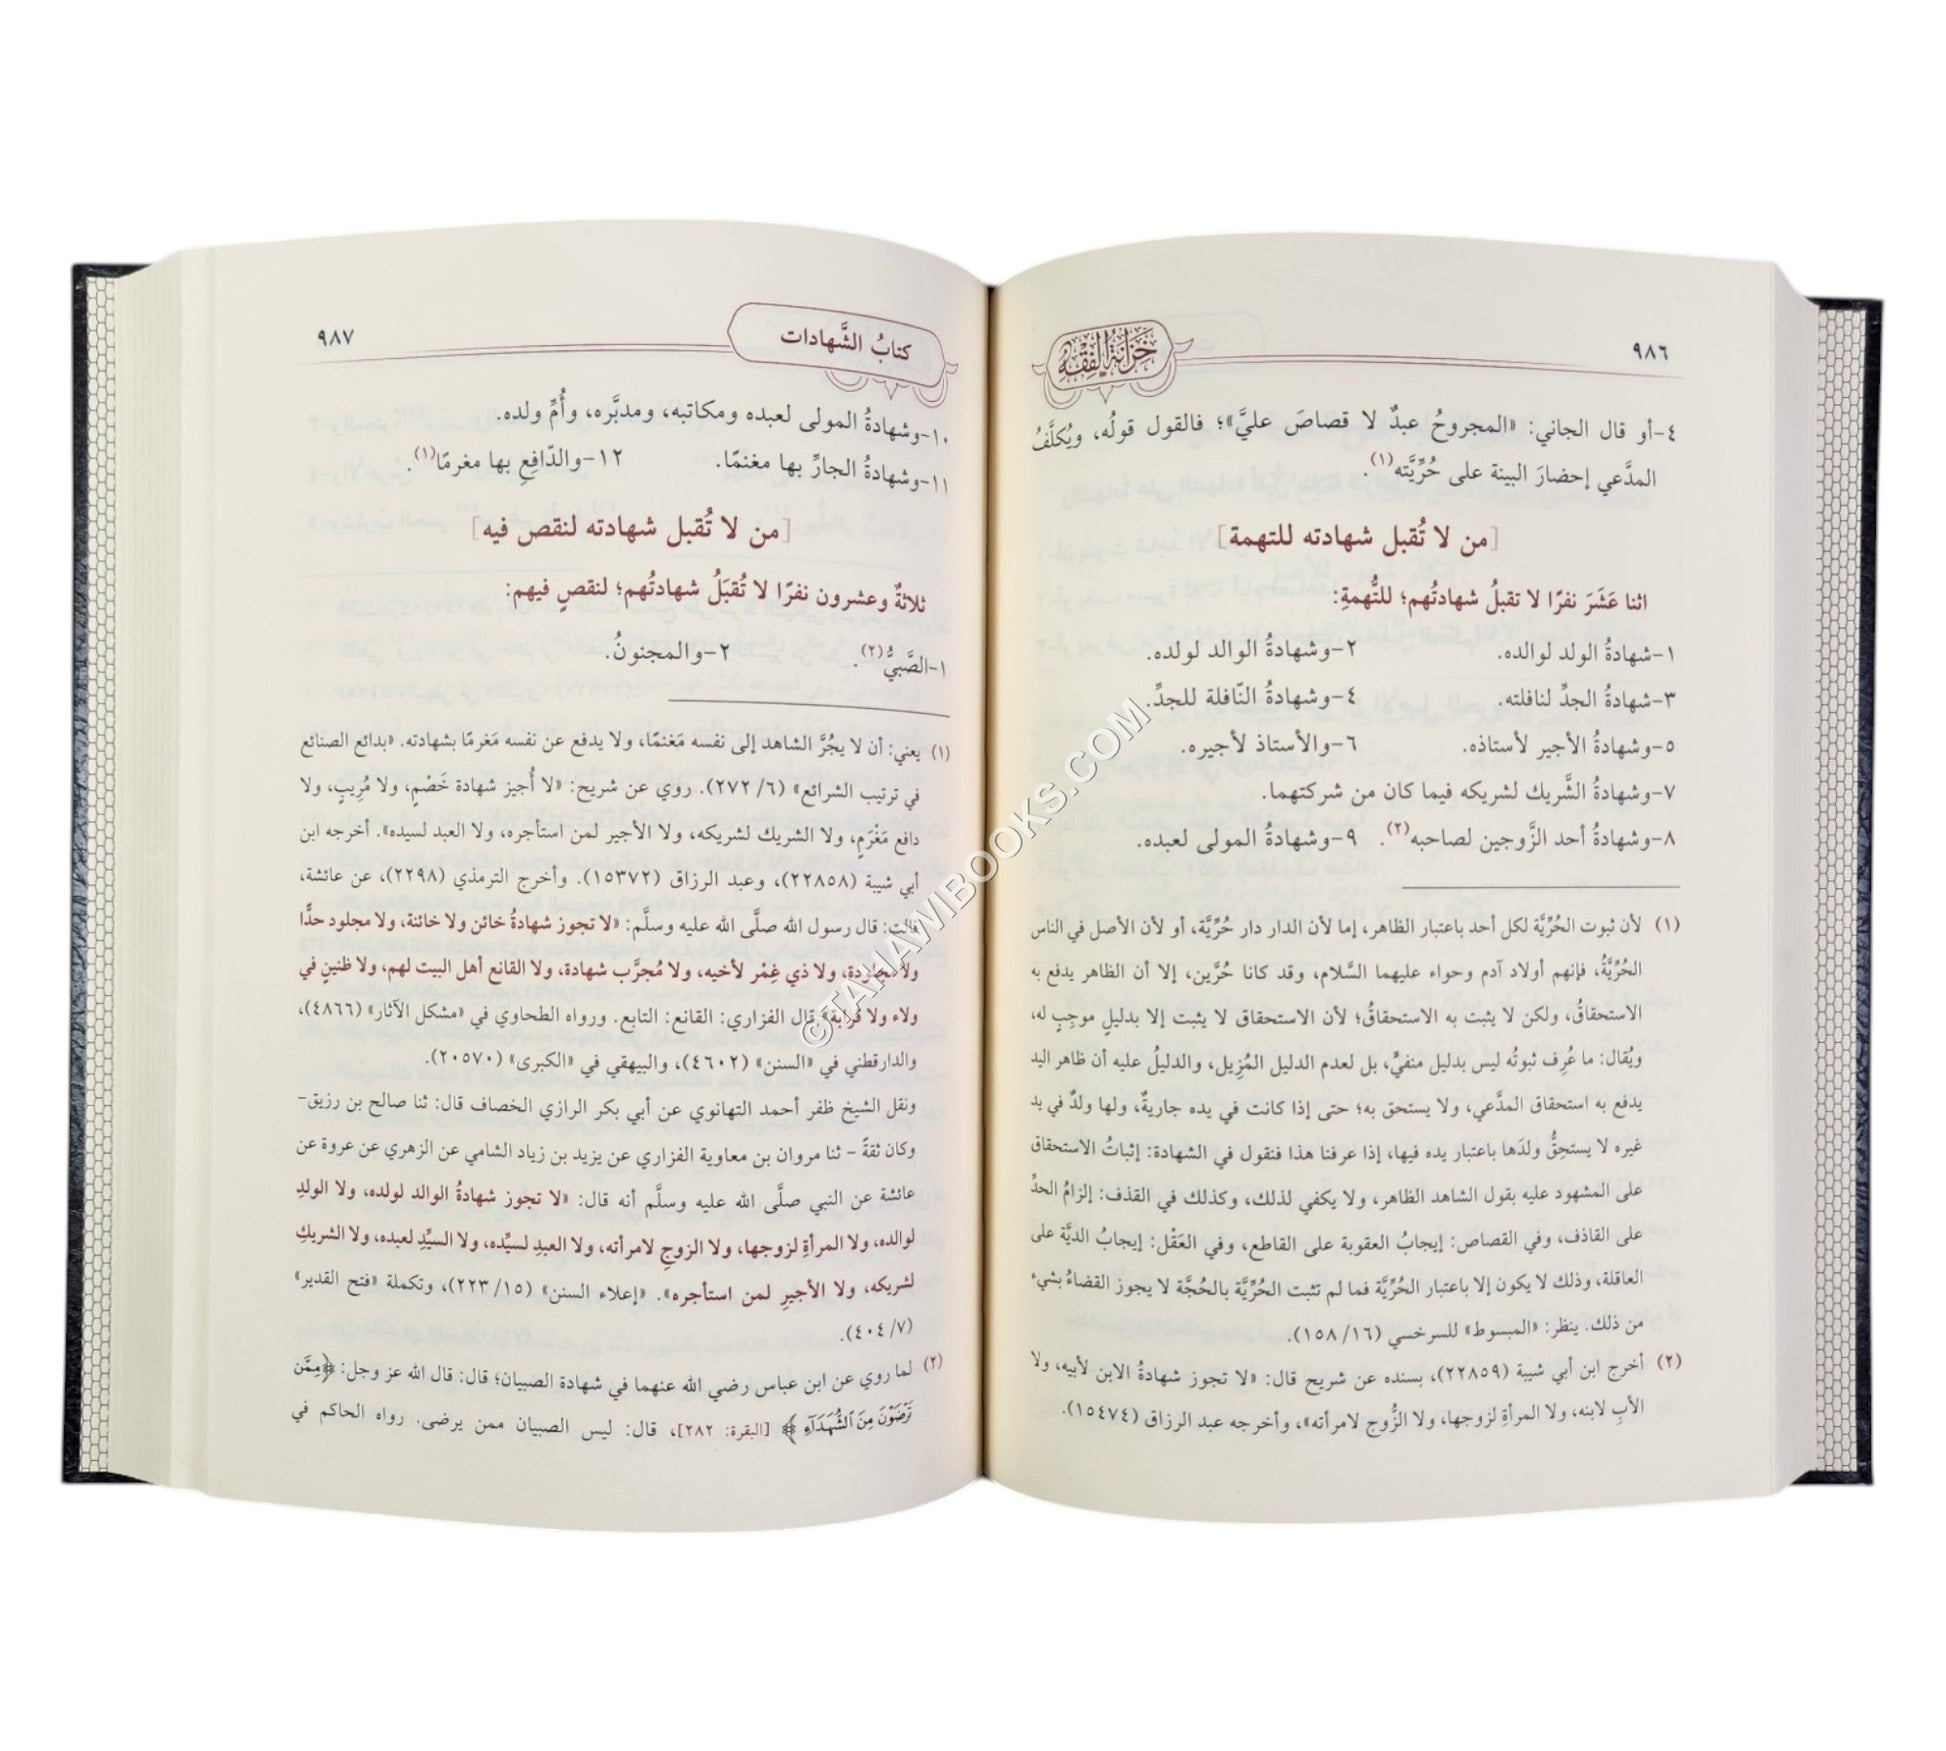 ٩٨٦
خزانة الفقه
٤-أو قال الجاني: «المجروحُ عبدٌ لا قصاصَ عليَّ»؛ فالقول قولُه، ويُكلَّفُ
المدَّعي إحضارَ البينة على حُرِّيَّته(١).
[من لا تُقبل شهادته للتهمة]
اثنا عَشَرَ نفرًا لا تقبلُ شهادتُهم؛ للتُّهمةِ:
١-شهادةُ الولد لوالده. ٢-وشهادةُ الوالد لولده.
٣-شهادةُ الجدِّ لنافلته. ٤-وشهادةُ النّافلة للجدِّ.
٥-وشهادةُ الأجير لأستاذه. ٦-والأستاذ لأجيره.
٧-وشهادةُ الشَّريك لشريكه فيما كان من شركتهما.
٨-وشهادةُ أحد الزَّوجين لصاحبه(٢). ٩-وشهادةُ المولى لعبده.
(١) لأن ثبوت الحُرِّيَّة لكل أحد باعتبار الظاهر، إما لأن الدار دار حُرِّيَّة، أو لأن الأصل في الناس
الحُرِّيَّةُ، فإنهم أولاد آدم وحواء عليهما السَّلام، وقد كانا حُرَّين، إلا أن الظاهر يدفع به
الاستحقاقُ، ولكن لا يثبت به الاستحقاقُ؛ لأن الاستحقاق لا يثبت إلا بدليلٍ موجِبٍ له،
ويُقال: ما عُرِف ثبوتُه ليس بدليل منفيٌّ، بل لعدم الدليل المُزِيل، والدليلُ عليه أن ظاهر اليد
يدفع به استحقاق المدَّعي، ولا يستحق به؛ حتى إذا كانت في يده جاريةٌ، ولها ولدٌ في يد
غيره لا يستحِقُّ ولدَها باعتبار يده فيها، إذا عرفنا هذا فنقول في الشهادة: إثباتُ الاستحقاق
على المشهود عليه بقول الشاهد الظاهر، ولا يكفي لذلك، وكذلك في القذف: إلزامُ الحدِّ
على القاذف، وفي القصاص: إيجابُ العقوبة على القاطع، وفي العَقْل: إيجابُ الديَّة على
العاقلة، وذلك لا يكون إلا باعتبار الحُرِّيَّة فما لم تثبت الحُرِّيَّة بالحُجَّة لا يجوز القضاءُ بشيء
من ذلك. ينظر: «المبسوط» للسرخسي (١٦/ ١٥٨).
(٢) أخرج ابن أبي شيبة (٢٢٨٥٩)، بسنده عن شريح قال: «لا تجوز شهادةُ الابن لأبيه، ولا
الأبِ لابنه، ولا المرأةِ لزوجها، ولا الزَّوج لامرأته»، وأخرجه عبد الرزاق (١٥٤٧٤).
كتابُ الشَّهادات
٩٨٧
١٠-وشهادةُ المولى لعبده ومكاتبه، ومدبَّره، وأُمِّ ولده.
١١-وشهادةُ الجارِّ بها مغنمًا. ١٢-والدّافِعِ بها مغرمًا(١).
[من لا تُقبل شهادته لنقص فيه]
ثلاثةٌ وعشرون نفرًا لا تُقبَلُ شهادتُهم؛ لنقصٍ فيهم:
١-الصَّبيُّ(٢). ٢-والمجنونُ.
(١) يعني: أن لا يجُرَّ الشاهد إلى نفسه مَغنمًا، ولا يدفع عن نفسه مَغرمًا بشهادته. «بدائع الصنائع
في ترتيب الشرائع» (٦/ ٢٧٢). روي عن شريح: «لا أُجيز شهادة خَصْمٍ، ولا مُرِيبٍ، ولا
دافع مَغْرَمٍ، ولا الشريك لشريكه، ولا الأجير لمن استأجره، ولا العبد لسيده». أخرجه ابن
أبي شيبة (٢٢٨٥٨)، وعبد الرزاق (١٥٣٧٢). وأخرج الترمذي (٢٢٩٨)، عن عائشة،
قالت: قال رسول الله صلَّى الله عليه وسلَّم: «لا تجوز شهادةُ خائن ولا خائنة، ولا مجلود حدًّا
ولا مجلودةٍ، ولا ذي غِمْر لأخيه، ولا مُجرَّب شهادة، ولا القانع أهل البيت لهم، ولا ظنينٍ في
ولاء ولا قرابة» قال الفزاري: القانع: التابع. ورواه الطحاوي في «مشكل الآثار» (٤٨٦٦)،
والدارقطني في «السنن» (٤٦٠٢)، والبيهقي في «الكبرى» (٢٠٥٧٠).
ونقل الشيخ ظفر أحمد التهانوي عن أبي بكر الرازي الخصاف قال: ثنا صالح بن رزيق-
وكان ثقةً - ثنا مروان بن معاوية الفزاري عن يزيد بن زياد الشامي عن الزهري عن عروة عن
عائشة عن النبي صلَّى الله عليه وسلَّم أنه قال: «لا تجوز شهادةُ الوالد لولده، ولا الولدِ
لوالده، ولا المرأةِ لزوجها، ولا الزوجِ لامرأته، ولا العبدِ لسيِّده، ولا السيِّدِ لعبده، ولا الشريكِ
لشريكه، ولا الأجيرِ لمن استأجره». «إعلاء السنن» (١٥/ ٢٢٣)، وتكملة «فتح القدير»
(٧/ ٤٠٤).
(٢) لما روي عن ابن عباس رضي الله عنهما في شهادة الصبيان؛ قال: قال الله عز وجل: ﴿مِمَّن
تَرْضَوْنَ مِنَ ٱلشُّهَدَآءِ﴾ [البقرة: ٢٨٢]، قال: ليس الصبيان ممن يرضى. رواه الحاكم في
©TAHAWIBOOKS.COM